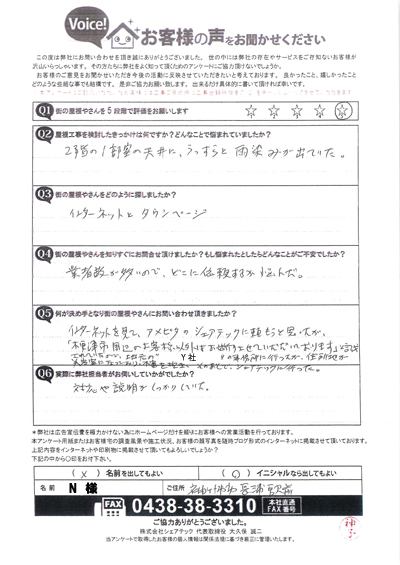 Voice!
お客様の声をお聞かせください
この度は弊社にお問い合わせを頂き誠にありがとうございました。世の中には弊社の存在やサービスをご存知ないお客様が
沢山いらっしゃいます。その方たちに弊社をよく知って頂くためのアンケートにご協力頂けないでしょうか。
お客様のご意見をお聞かせいただき今後の活動に反映させていただきたいと考えております。良かったこと、嬉しかったこと
どのような些細な事でも結構です。是非ご協力お願い致します。出来るだけ具体的に書いて頂ければ幸いです。
Q1 街の屋根やさんを5段階で評価をお願いします ☆ ☆ ☆ ☆ ☆
Q2 屋根工事を検討したきっかけは何ですか?どんなことで悩まれていましたか?
2階の1部屋の天井に、うっすらと雨染みが出ていた。
Q3 街の屋根やさんをどのように探しましたか?
インターネットとタウンページ
Q4 街の屋根やさんを知りすぐにお問合せ頂けましたか?もし悩まれたとしたらどんなことがご不安でしたか?
業者数が多いので、どこに依頼するか悩んだ。
Q5 何が決め手となり街の屋根やさんにお問い合わせ頂きましたか?
インターネットを見て、アメピタのシェアテックに頼もうと思ったが、
「木更津市周辺のお客様以外はお断りさせていただいております」と
Y社
Q6 実際に弊社担当者がお伺いしていかがでしたか?
対応や説明がしっかりしていた。
*弊社は広告宣伝費を極力かけない為にホームページだけを頼りにお客様への営業活動を行っております。
本アンケート用紙またはお客様宅の調査風景や施工状況、お客様の顔写真を随時ブログ形式のインターネットに掲載させて頂いております。
上記内容をインターネットや印刷物に掲載させて頂いてもよろしいでしょうか?
下記の中から〇印をお付け下さい。
(×)名前を出してもよい (〇)イニシャルなら出してもよい
名前 N 様 ご住所 袖ケ浦市長浦駅前
FAX 0438-38-3310 本社直通FAX番号
ご協力ありがとうございました。
株式会社シェアテック 代表取締役 大久保 誠二
当アンケートで取得したお客様の個人情報は関係法規に基づき厳正に管理いたします。